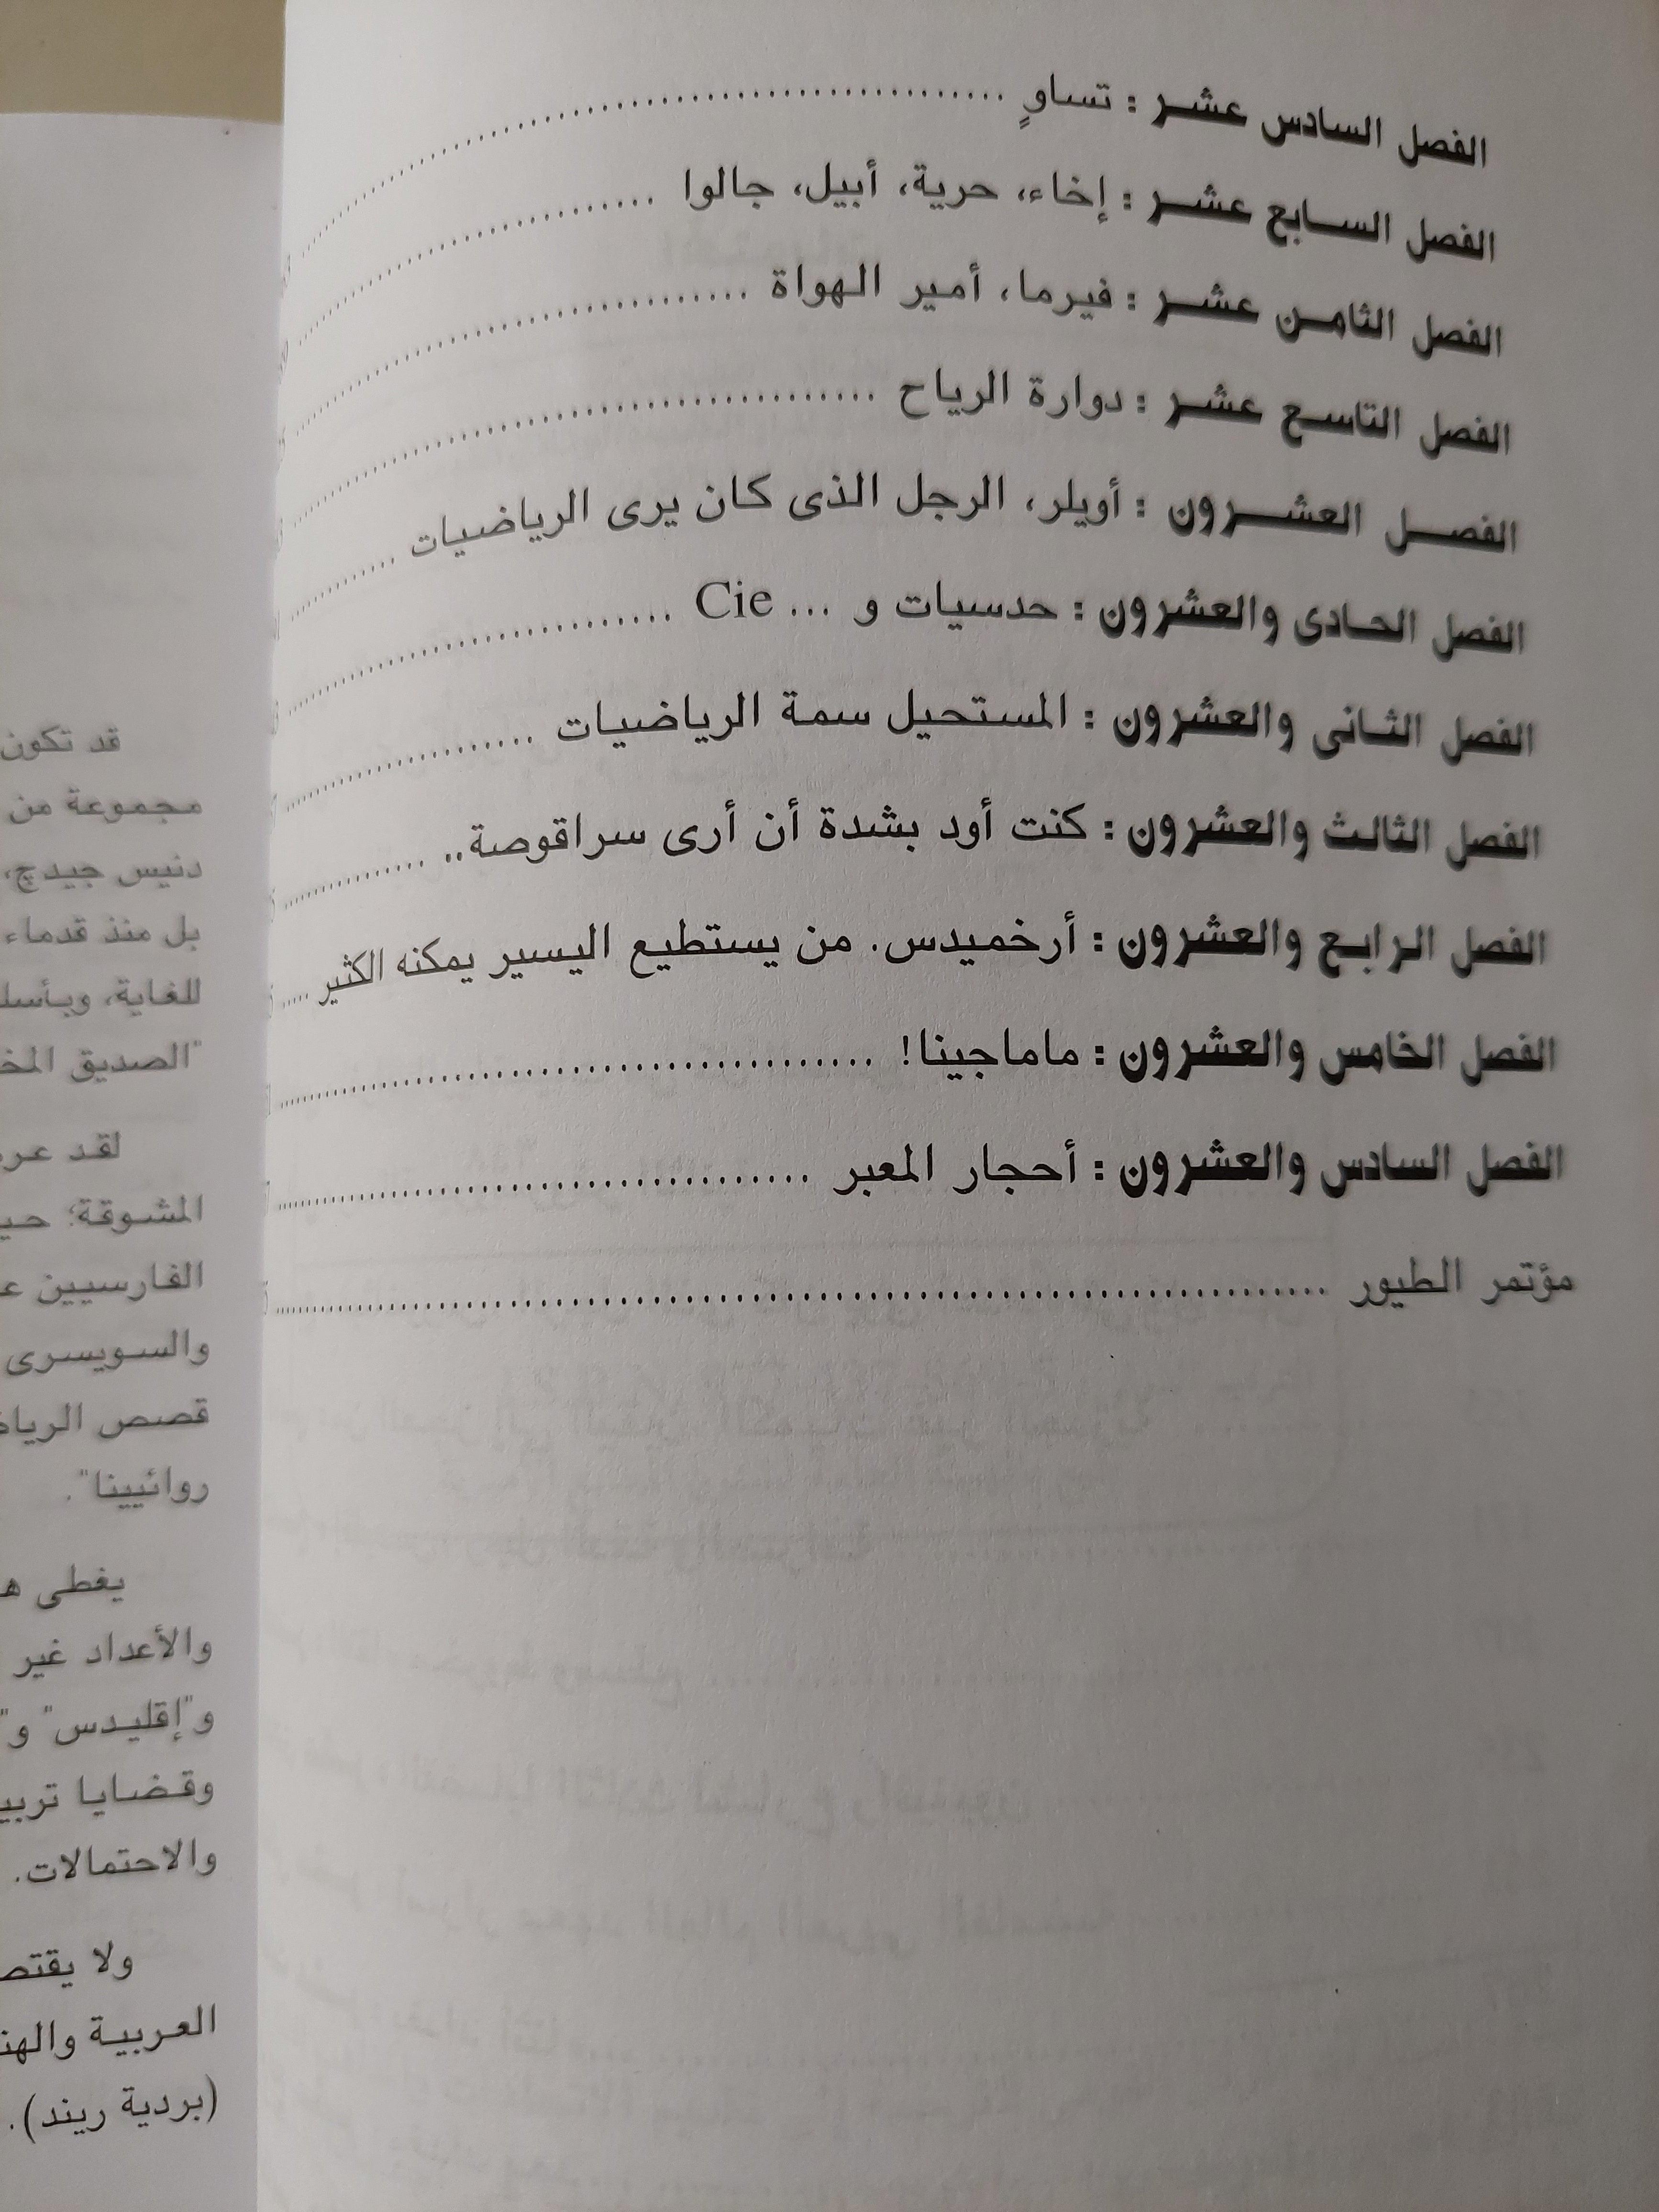 الفصل السادس عشر : تساوٍ
الفصل السابع عشر : إخاء، حرية، أبيل، جالوا
الفصل الثامن عشر : فيرما، أمير الهواة
الفصل التاسع عشر : دوارة الرياح
الفصل العشرون : أويلر، الرجل الذى كان يرى الرياضيات
الفصل الحادى والعشرون : حدسيات و ... Cie
الفصل الثانى والعشرون : المستحيل سمة الرياضيات
الفصل الثالث والعشرون : كنت أود بشدة أن أرى سراقوصة..
الفصل الرابع والعشرون : أرخميدس. من يستطيع اليسير يمكنه الكثير
الفصل الخامس والعشرون : ماماجينا!
الفصل السادس والعشرون : أحجار المعبر
مؤتمر الطيور
قد تكون
مجموعة من
دنيس جيدج،
بل منذ قدماء
للغاية، وبأسلـ
"الصديق المخـ
لقد عرـ
المشوقة؛ حيـ
الفارسيين عـ
والسويسرى
قصص الرياضـ
روائيينا".
يغطى هـ
والأعداد غير
و"إقليدس" و"
وقضايا تربيـ
والاحتمالات.
ولا يقتصـ
العربية والهنـ
(بردية ريند).